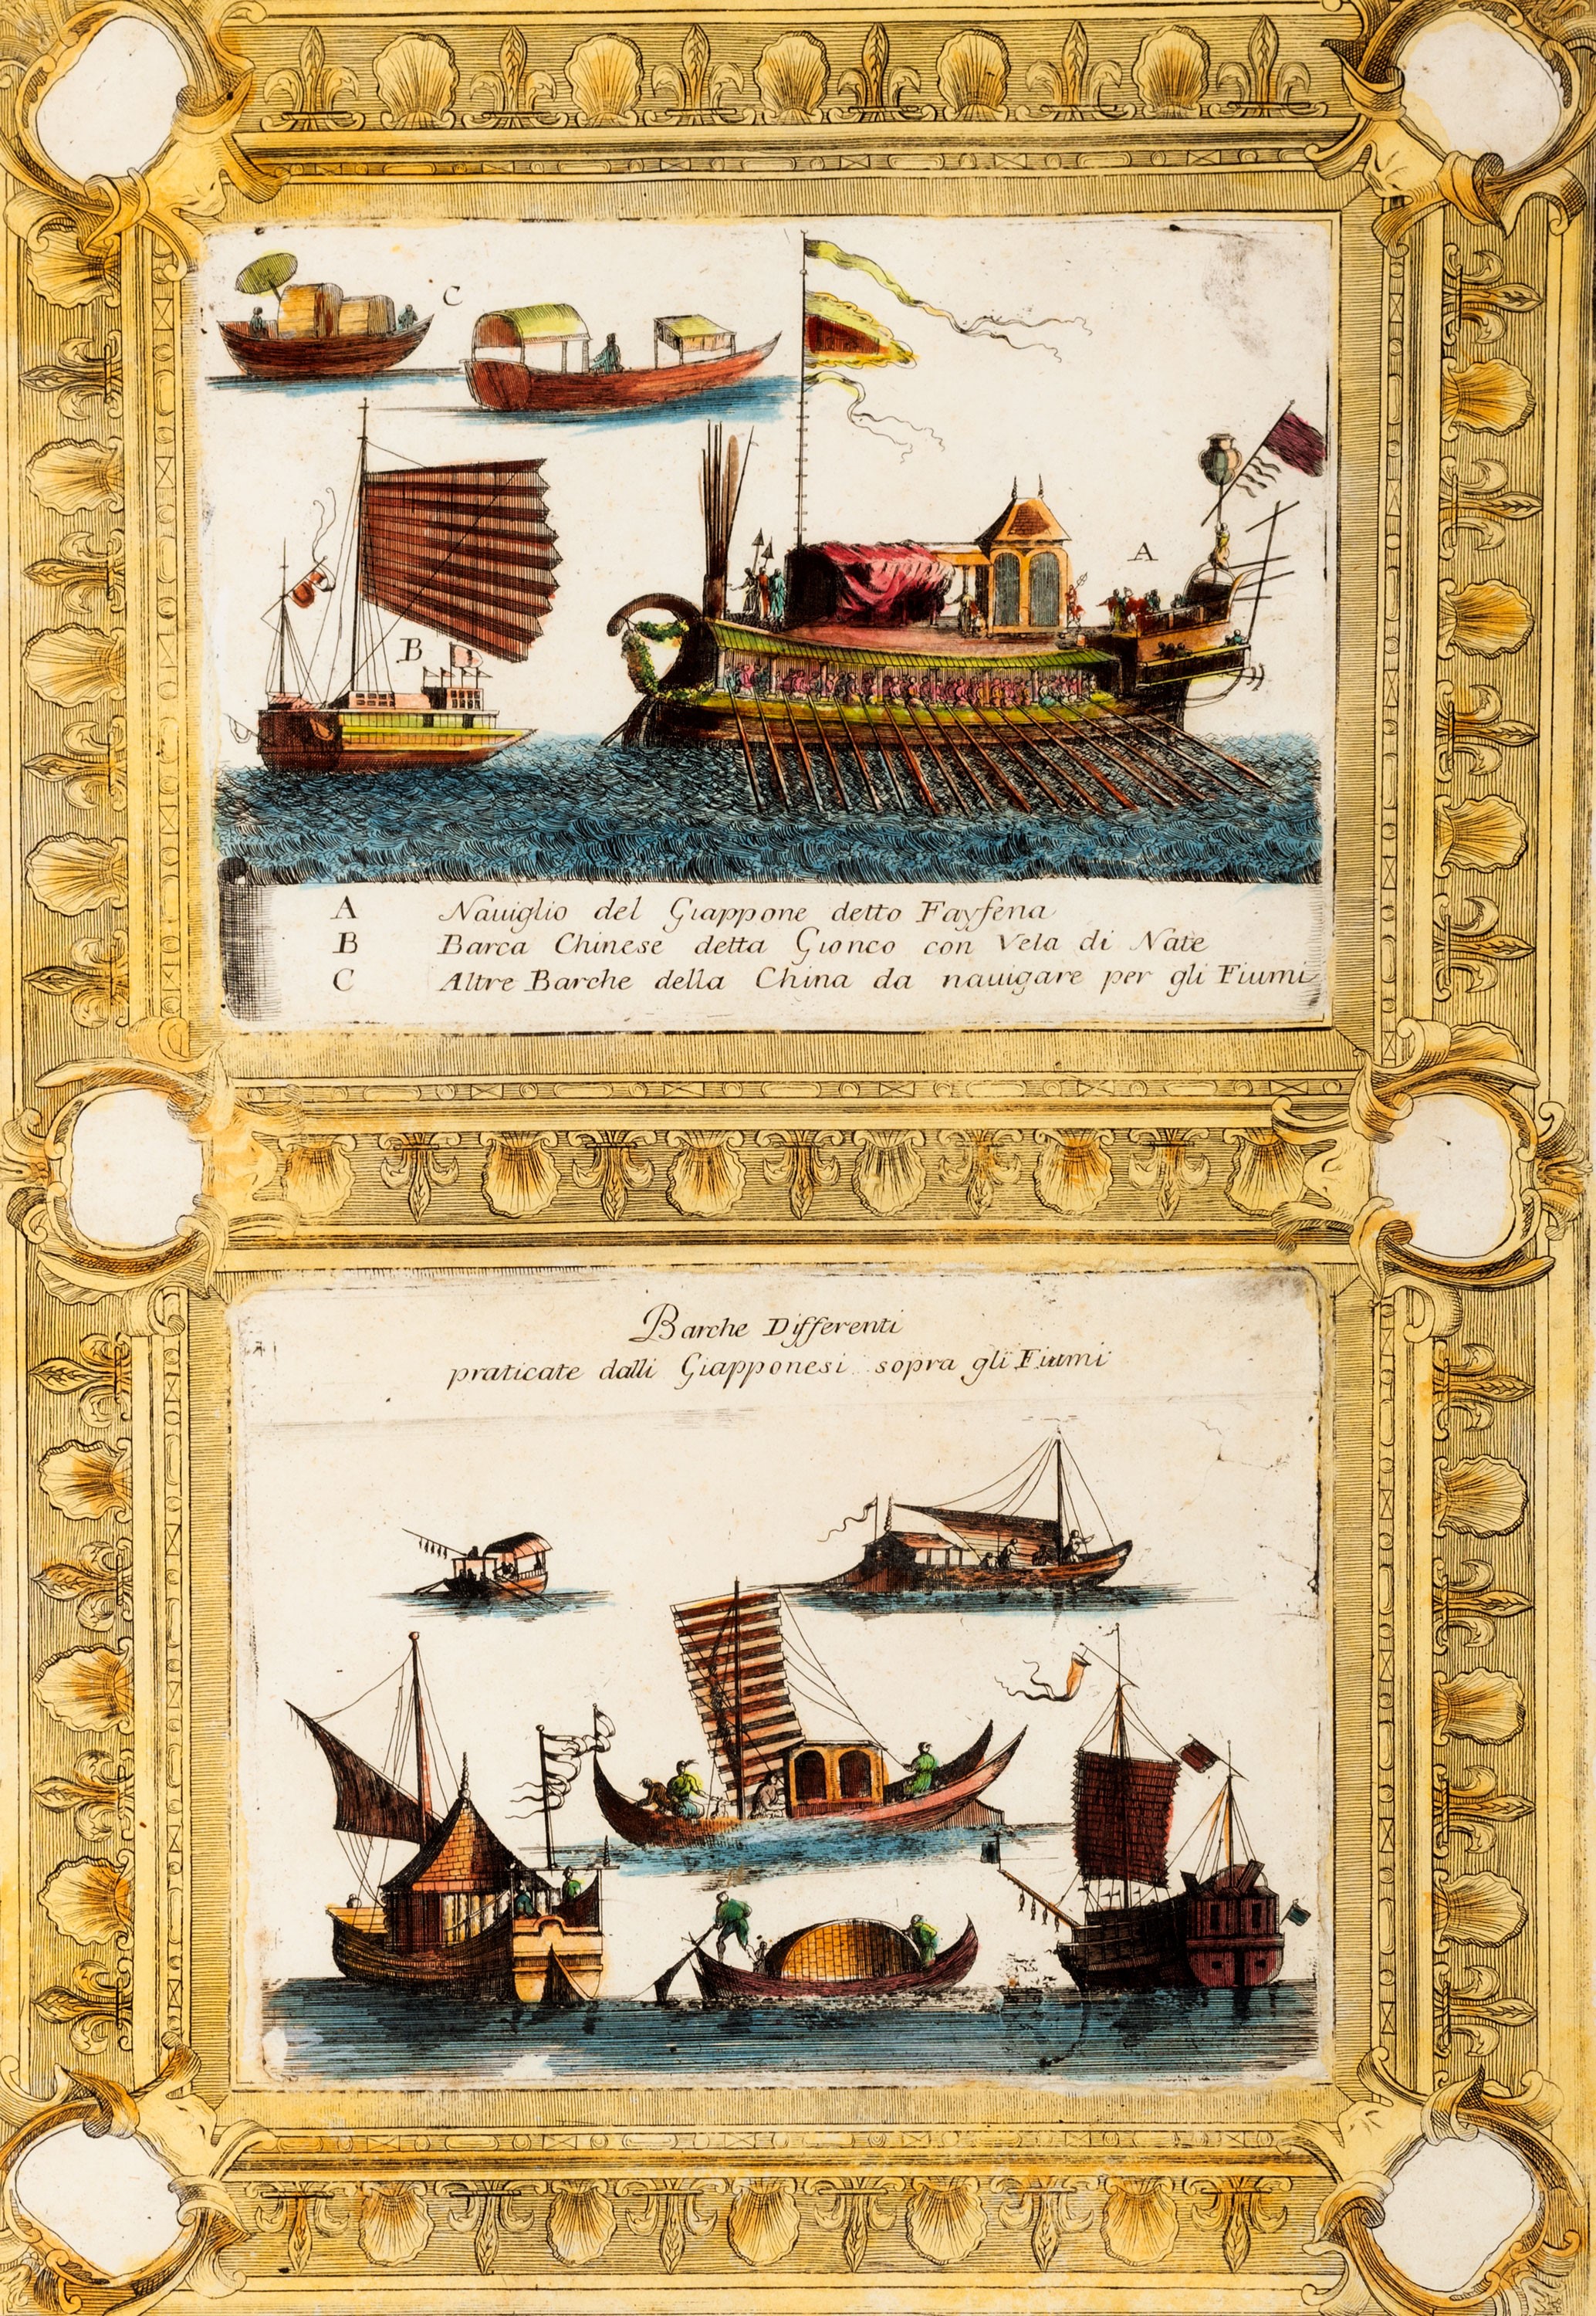 C
A
B
A Nauiglio del Giappone detto Fayfena
B Barca Chinese detta Gionco con Vela di Nate
C Altre Barche della China da nauigare per gli Fiumi
Barche Differenti
praticate dalli Giapponesi sopra gli Fiumi